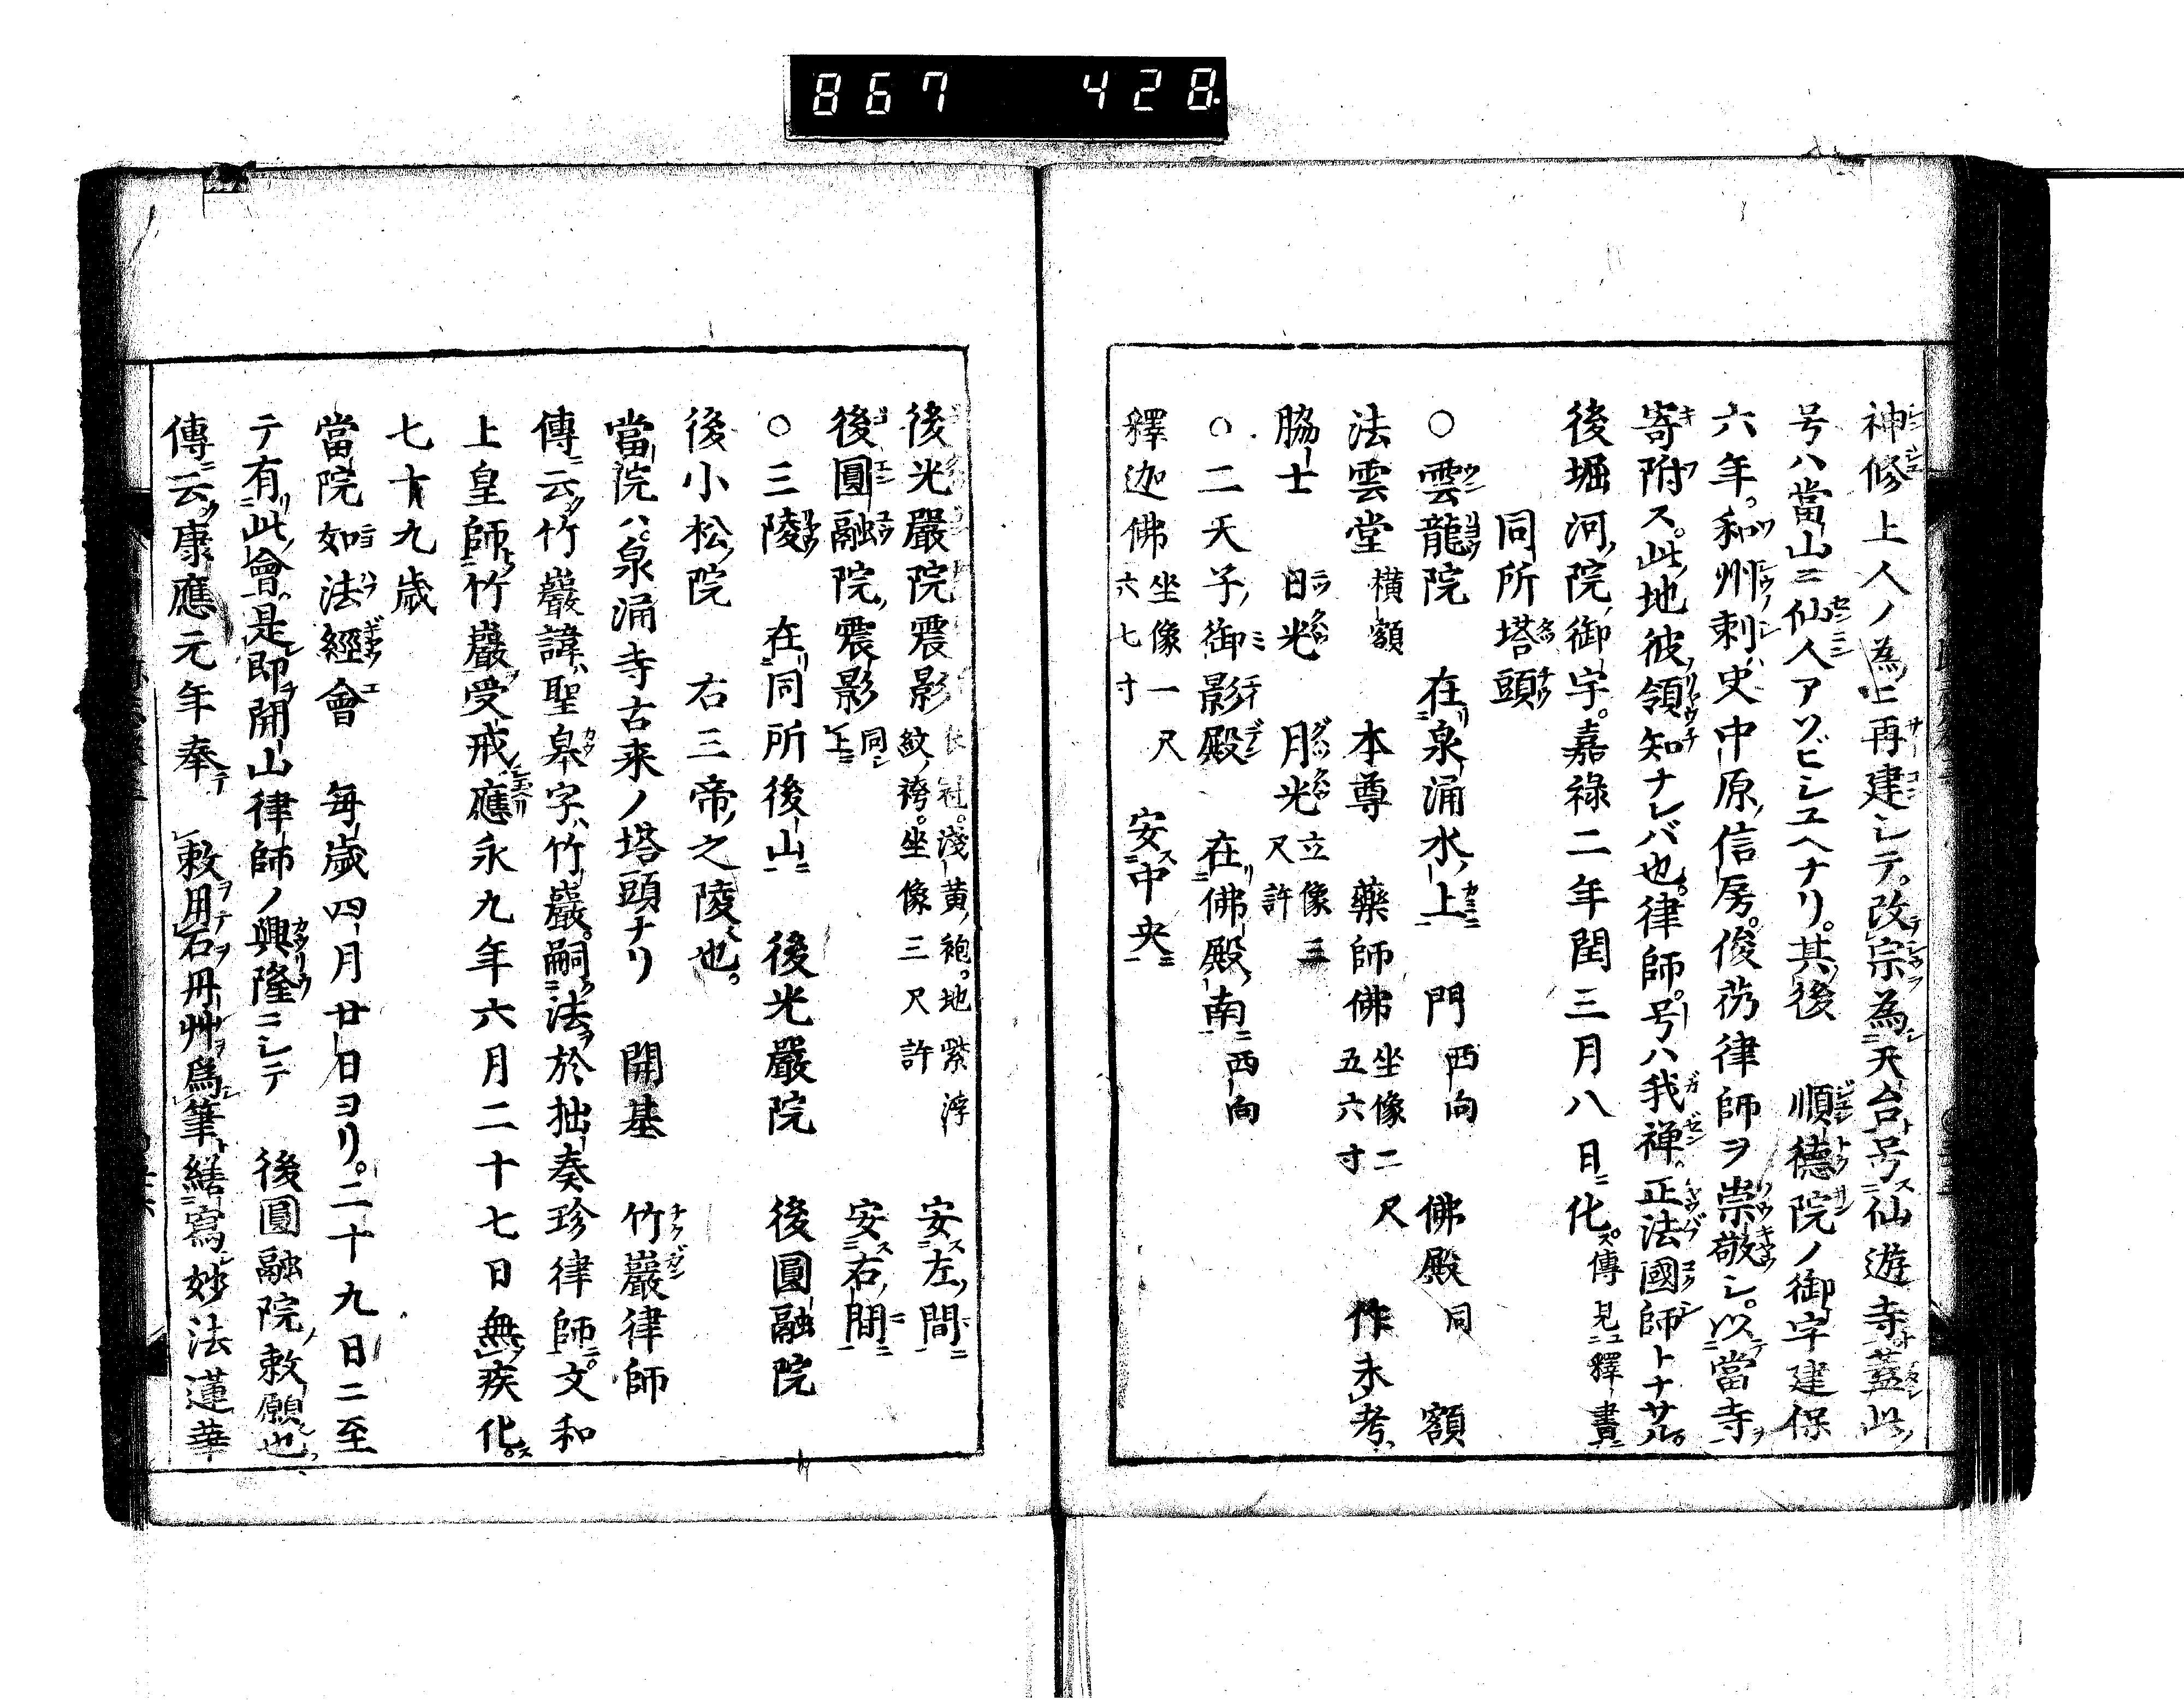 867 428
神修上人ノ為ニ再建シテ。改宗為天台号仙遊寺蓋此
号ハ當山ニ仙人アソビシユヘナリ。其後 順德院ノ御宇建保
六年。和州刺史中原信房。俊芿律師ヲ崇敬シ。以當寺
寄附ス。此地彼領知ナレバ也。律師。号ハ我禅。正法國師トナサル
後堀河院御宇。嘉禄二年閏三月八日化。傳見釋書
同所塔頭
○雲龍院 在泉涌水上 門西向 佛殿同 額
法雲堂横額 本尊 藥師佛坐像二尺五六寸 作未考
脇士 日光 月光立像三尺許
○二天子御影殿 在佛殿南西向
釋迦佛坐像一尺六七寸 安中央
後光嚴院震影衣冠。淺黄袍。地紫浮紋袴。坐像三尺許 安左間
後圓融院震影同上 安右間
○三陵 在同所後山 後光嚴院 後圓融院
後小松院 右三帝之陵也。
當院ハ泉涌寺古来ノ塔頭ナリ 開基 竹巖律師
傳云竹巖諱聖皐字竹巖。嗣法於拙奏珍律師。文和
上皇師竹巖受戒應永九年六月二十七日無疾化。
七十九歳
當院如法經會 毎歳四月廿日ヨリ。二十九日ニ至
テ有此會是即開山律師ノ興隆ニシテ 後圓融院敕願也
傳云康應元年奉 敕用石丹艸爲筆繕寫妙法蓮華